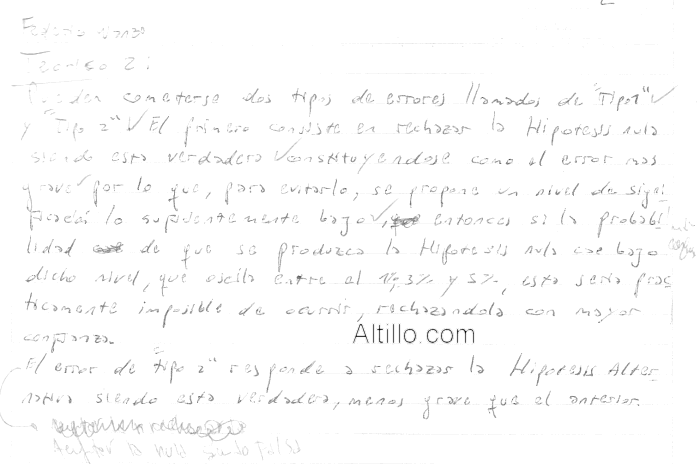 Teórico 2:
Pueden cometerse dos tipos de errores llamados de "Tipo 1"
y "Tipo 2" El primero consiste en rechazar la Hipotesis nula
siendo esta verdadera constituyendose como el error mas
grave por lo que, para evitarlo, se propone un nivel de signi-
lo suficientemente bajo, entonces si la probabi-
lidad de que se produzca la Hipotesis nula cae bajo
dicho nivel, que oscila entre al 1%, 3% y 5%, esta seria prac-
ticamente imposible de ocurrir, rechazandola con mayor
confianza.
Altillo.com
El error de "tipo 2" responde a rechazar la Hipotesis Alter-
nativa siendo esta verdadera, menos grave que el anterior.
Aceptar la nula siendo falsa